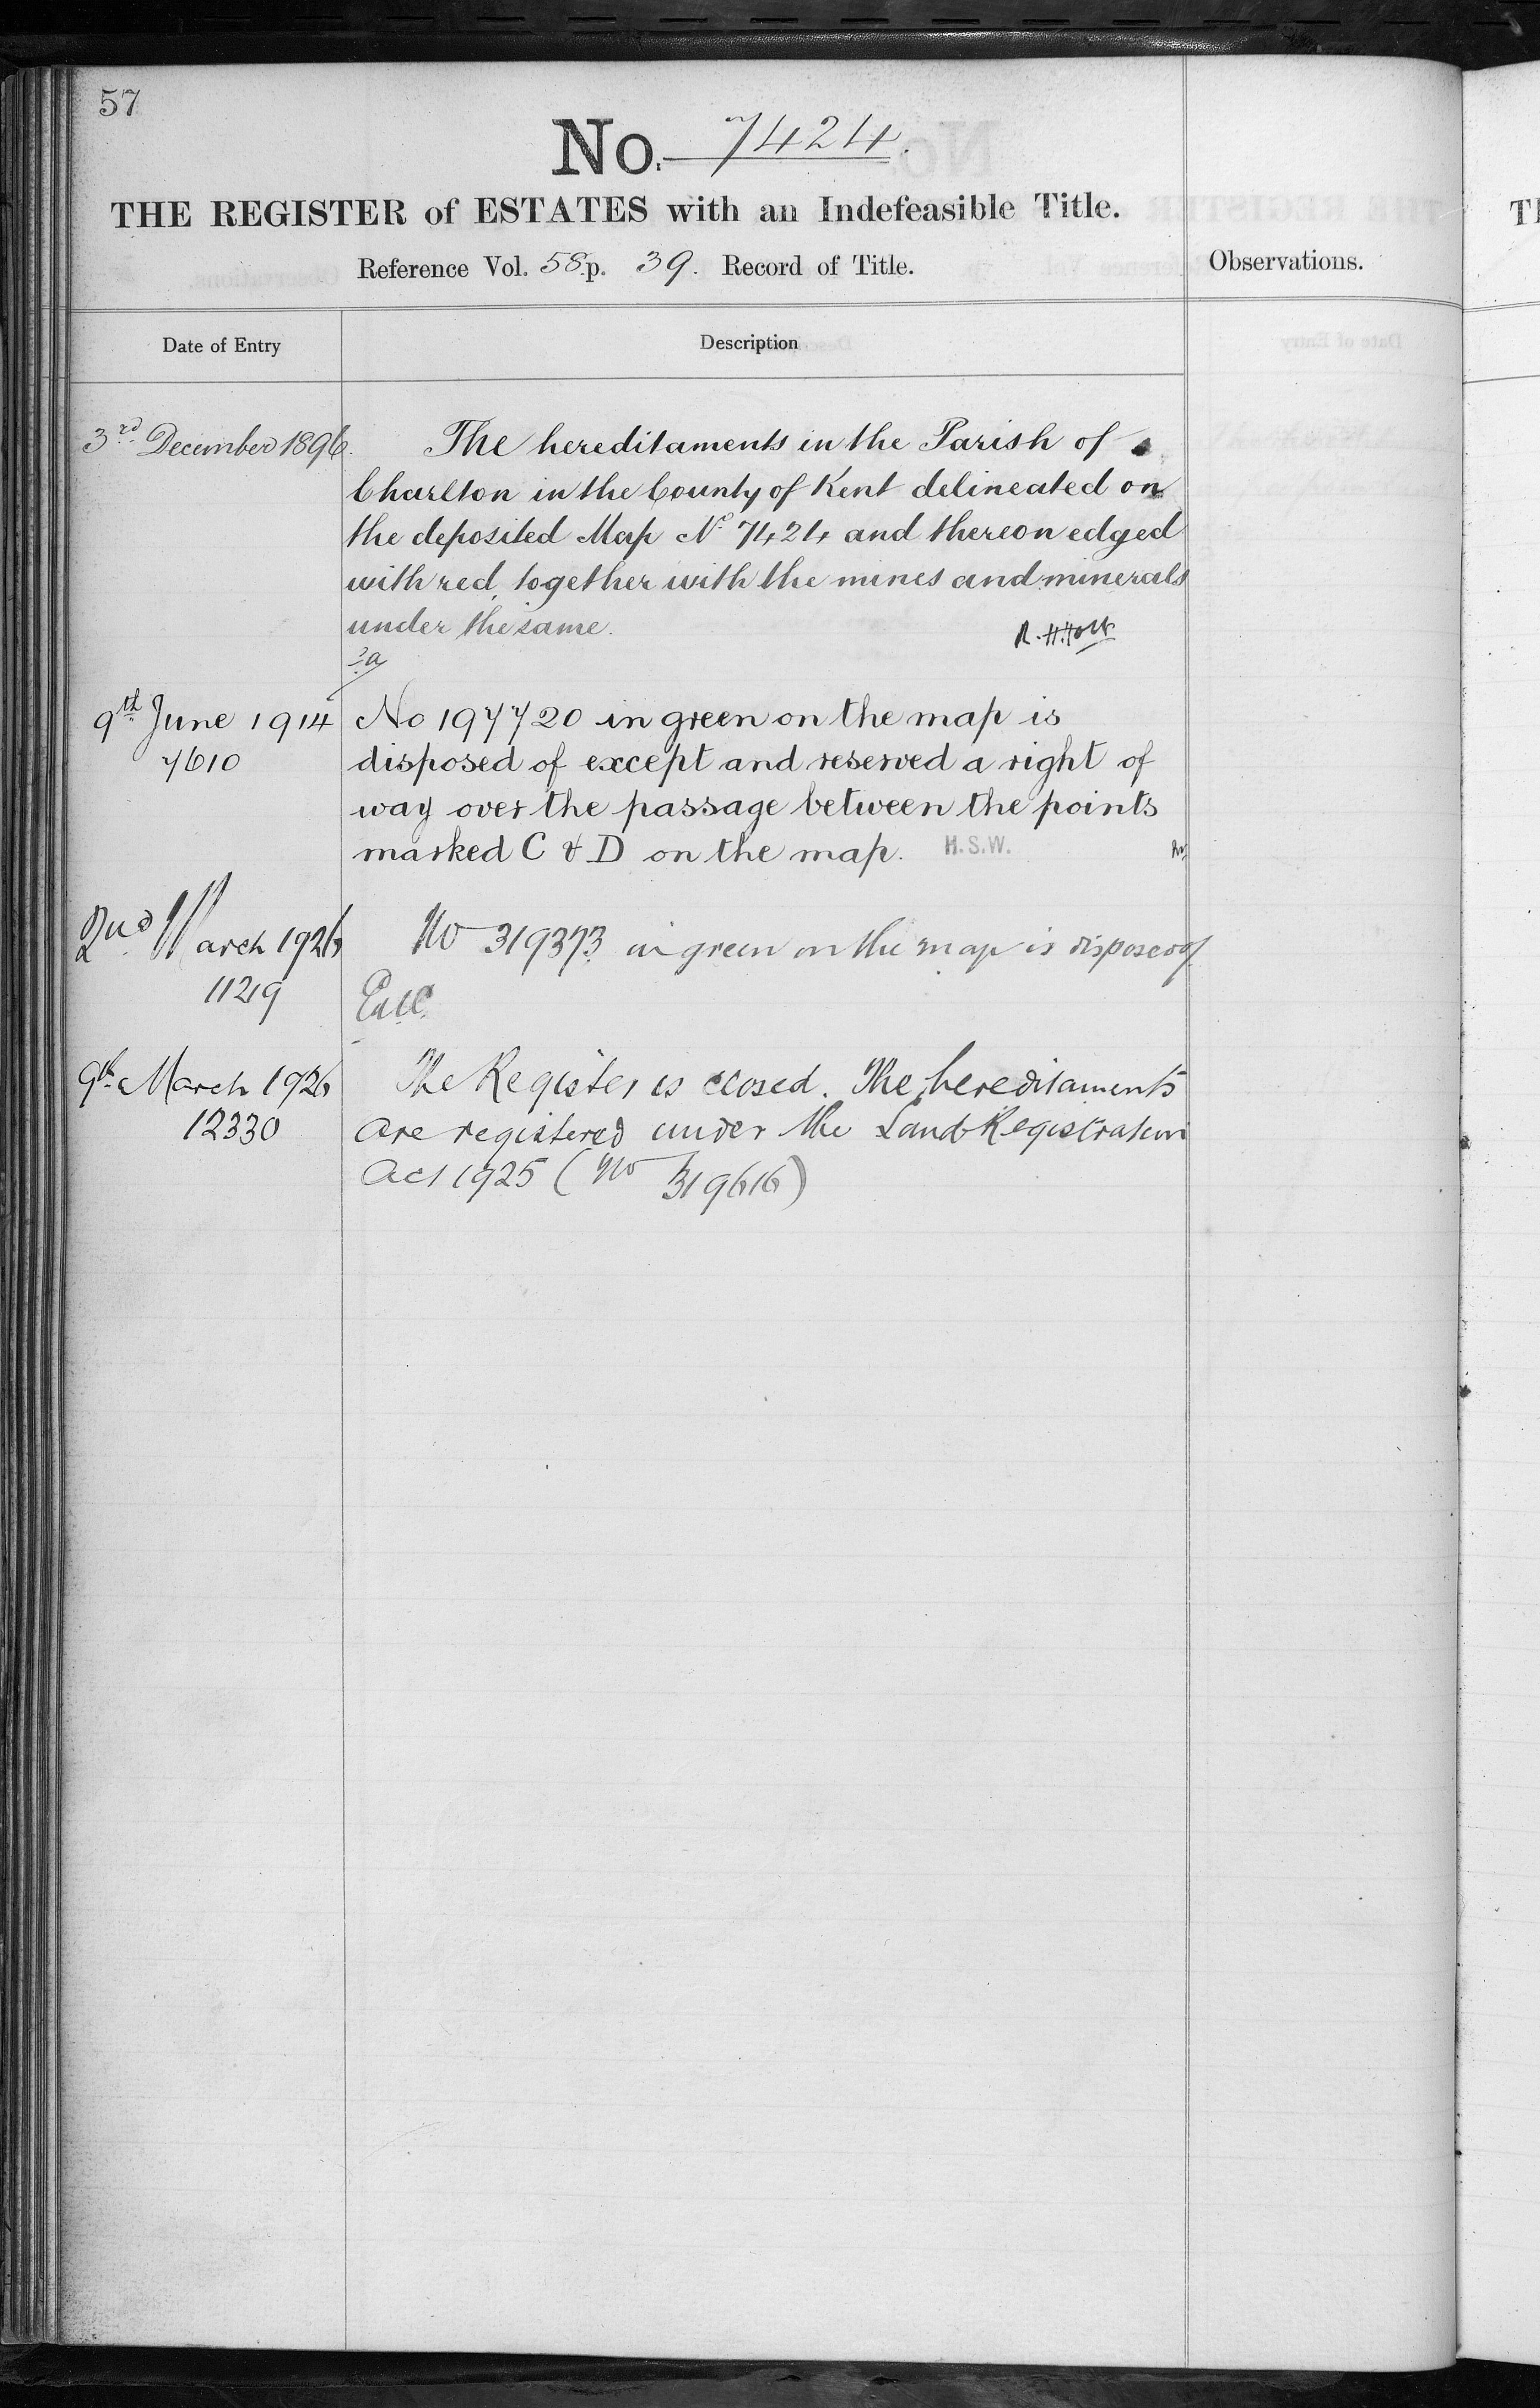 57
No. 7424.
THE REGISTER of ESTATES with an Indefeasible Title.
Reference Vol. 58 p. 39. Record of Title.
Observations.
Date of Entry
Description
3rd December 1896.
The hereditaments in the Parish of
Charlton in the County of Kent delineated on
the deposited Map No 7424 and thereon edged
with red, together with the mines and minerals
under the same.
R. H. Holt
9th June 1914
7610
No 197720 in green on the map is
disposed of except and reserved a right of
way over the passage between the points
marked C & D on the map. H.S.W.
2nd March 1926
11219
No 319373 in green on the map is disposed of
9th March 1926
12330
The Register is closed. The hereditaments
are registered under the Land Registration
Act 1925 (No 319616)